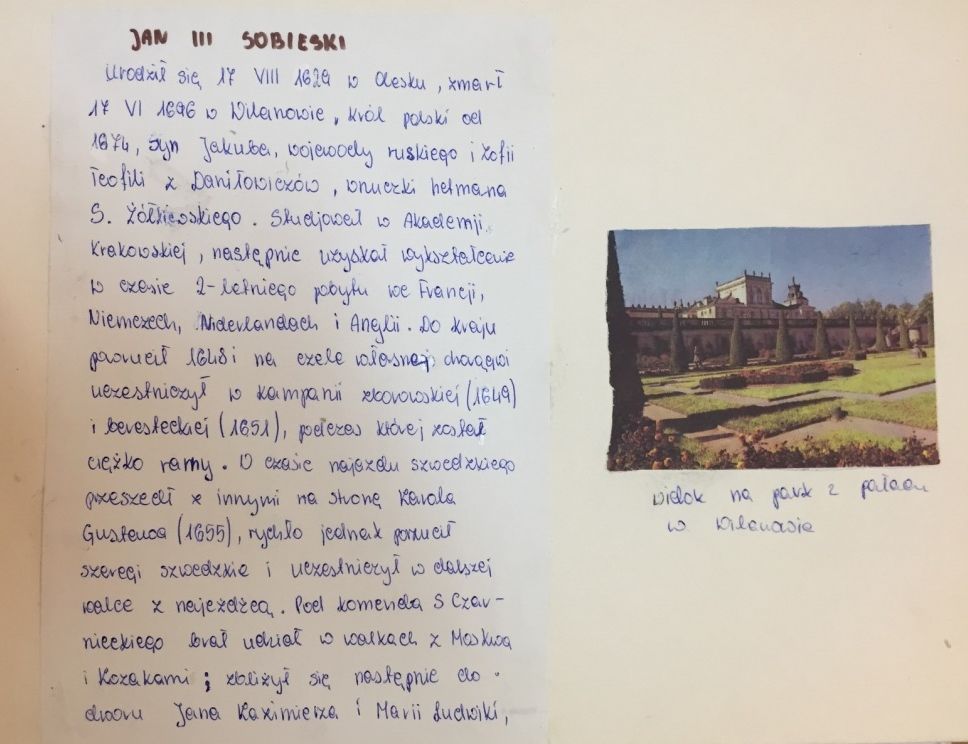 JAN III SOBIESKI
Urodził się 17 VIII 1629 w Olesku, zmarł
17 VI 1696 w Wilanowie, król polski od
1674, Syn Jakuba, wojewody ruskiego i Zofii
Teofili z Daniłowiczów, wnuczki hetmana
S. Żółkiewskiego. Studiował w Akademii
Krakowskiej, następnie uzyskał wykształcenie
w czasie 2-letniego pobytu we Francji,
Niemczech, Niderlandach i Anglii. Do kraju
powrócił 1648 i na czele własnej chorągwi
uczestniczył w kampanii zborowskiej (1649)
i beresteckiej (1651), podczas której został
ciężko ranny. W czasie najazdu szwedzkiego
przeszedł z innymi na stronę Karola
Gustawa (1655), rychło jednak porzucił
szeregi szwedzkie i uczestniczył w dalszej
walce z najeźdźcą. Pod komendą S Czar-
nieckiego brał udział w walkach z Moskwą
i Kozakami; zbliżył się następnie do
dworu Jana Kazimierza i Marii Ludwiki,
widok na park z pałacu
w Wilanowie